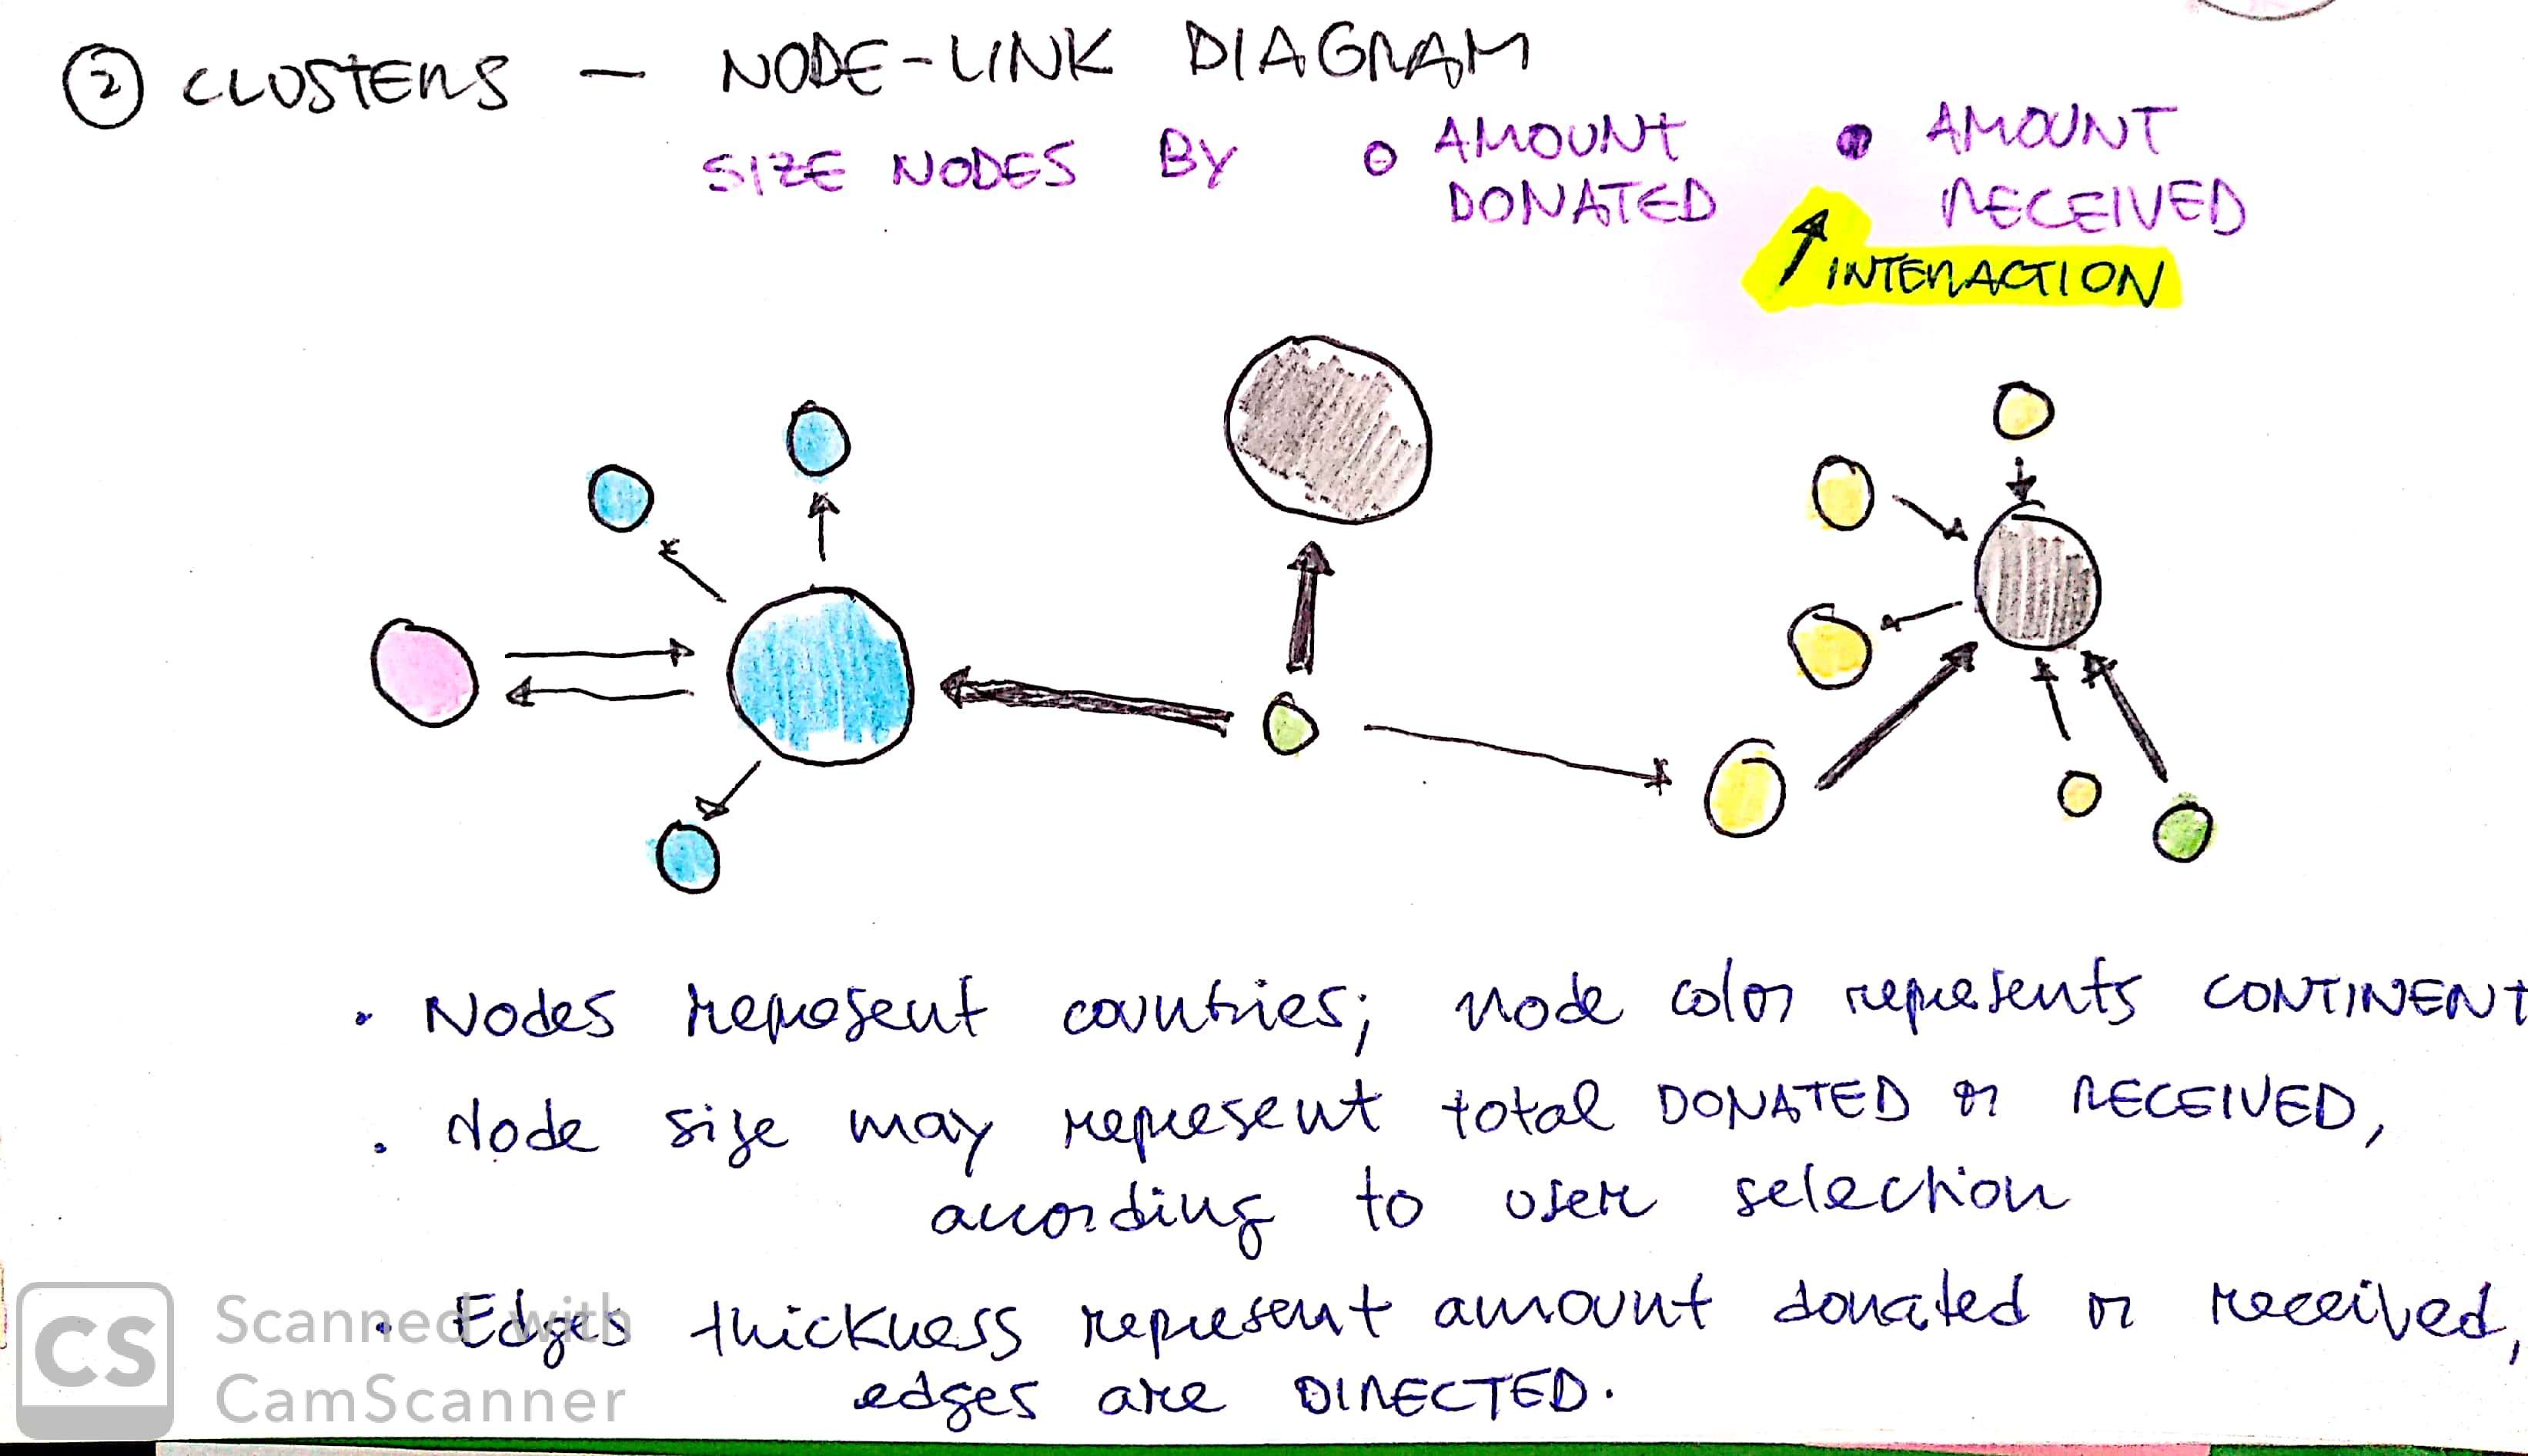 ② CLUSTERS — NODE-LINK DIAGRAM
SIZE NODES BY AMOUNT DONATED AMOUNT RECEIVED
INTERACTION
• Nodes represent countries; node color represents CONTINENT
• Node size may represent total DONATED or RECEIVED,
according to user selection
• Edges thickness represent amount donated or received,
edges are DIRECTED.
CS Scanned with
CamScanner